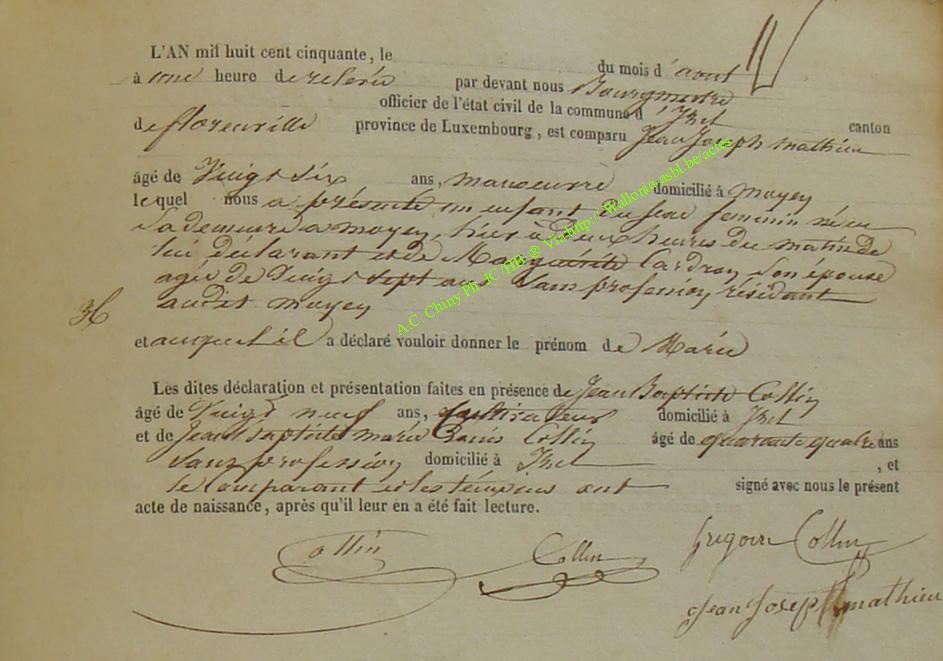 L'AN mil huit cent cinquante, le du mois d'aout
à une heure de relevée par devant nous Bourgmestre
officier de l'état civil de la commune d'Izel canton
de florenville province de Luxembourg, est comparu Jean Joseph mathieu
âgé de Vingt Six ans, manoeuvre domicilié à moyen
le quel nous a présenté un enfant du sexe feminin né en
Sa demeure a moyen, hier à Deux heures du matin de
lui déclarant et de Marguérite Cardron Son épouse
agée de Vingt Sept ans Sans profession, résidant
audit moyen
et auquel il a déclaré vouloir donner le prénom de Marie
Les dites déclaration et présentation faites en présence de Jean Baptiste Collin
âgé de Vingt neuf ans, cultivateur domicilié à Izel
et de Jean Baptiste marie Denis Collin âgé de quarante quatre ans
Sans profession domicilié à Izel , et
le comparant et les témoins ont signé avec nous le présent
acte de naissance, après qu'il leur en a été fait lecture.
Collin Collin Gregoire Collin
Jean Joseph mathieu
A.C Chiny Ph.JC/HH @ Via http://Wallonia-asbl.be/actes